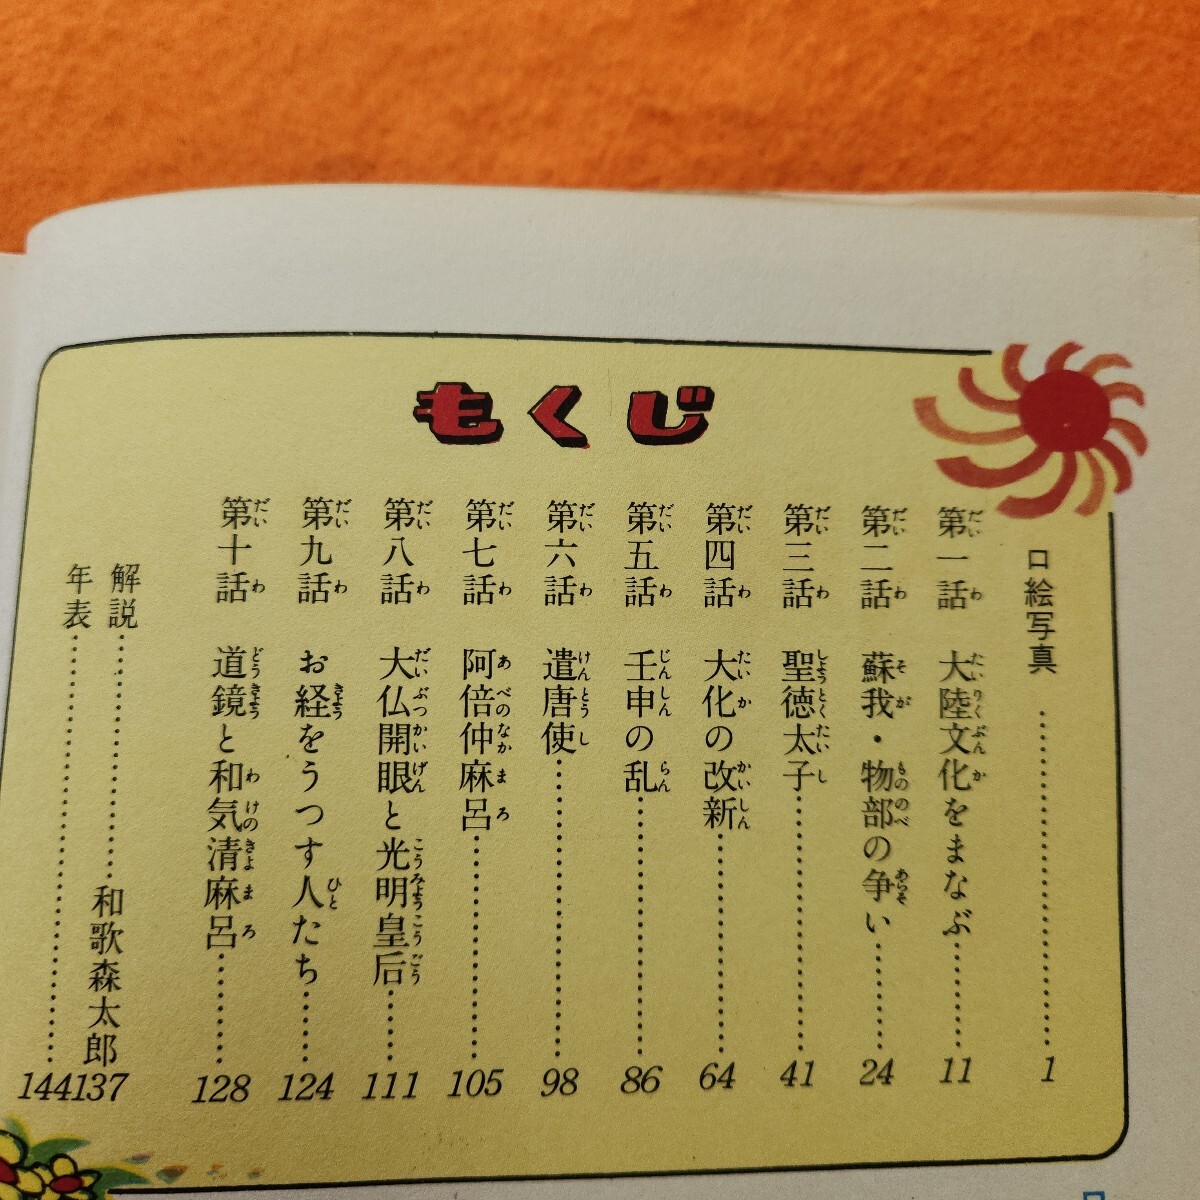 もくじ
口絵写真……………………1
第一話　大陸文化をまなぶ………11
第二話　蘇我・物部の争い………24
第三話　聖徳太子………………41
第四話　大化の改新………………64
第五話　壬申の乱………………86
第六話　遣唐使………………98
第七話　阿倍仲麻呂………………105
第八話　大仏開眼と光明皇后………111
第九話　お経をうつす人たち………124
第十話　道鏡と和気清麻呂………128
解説………………和歌森太郎　137
年表………………………144